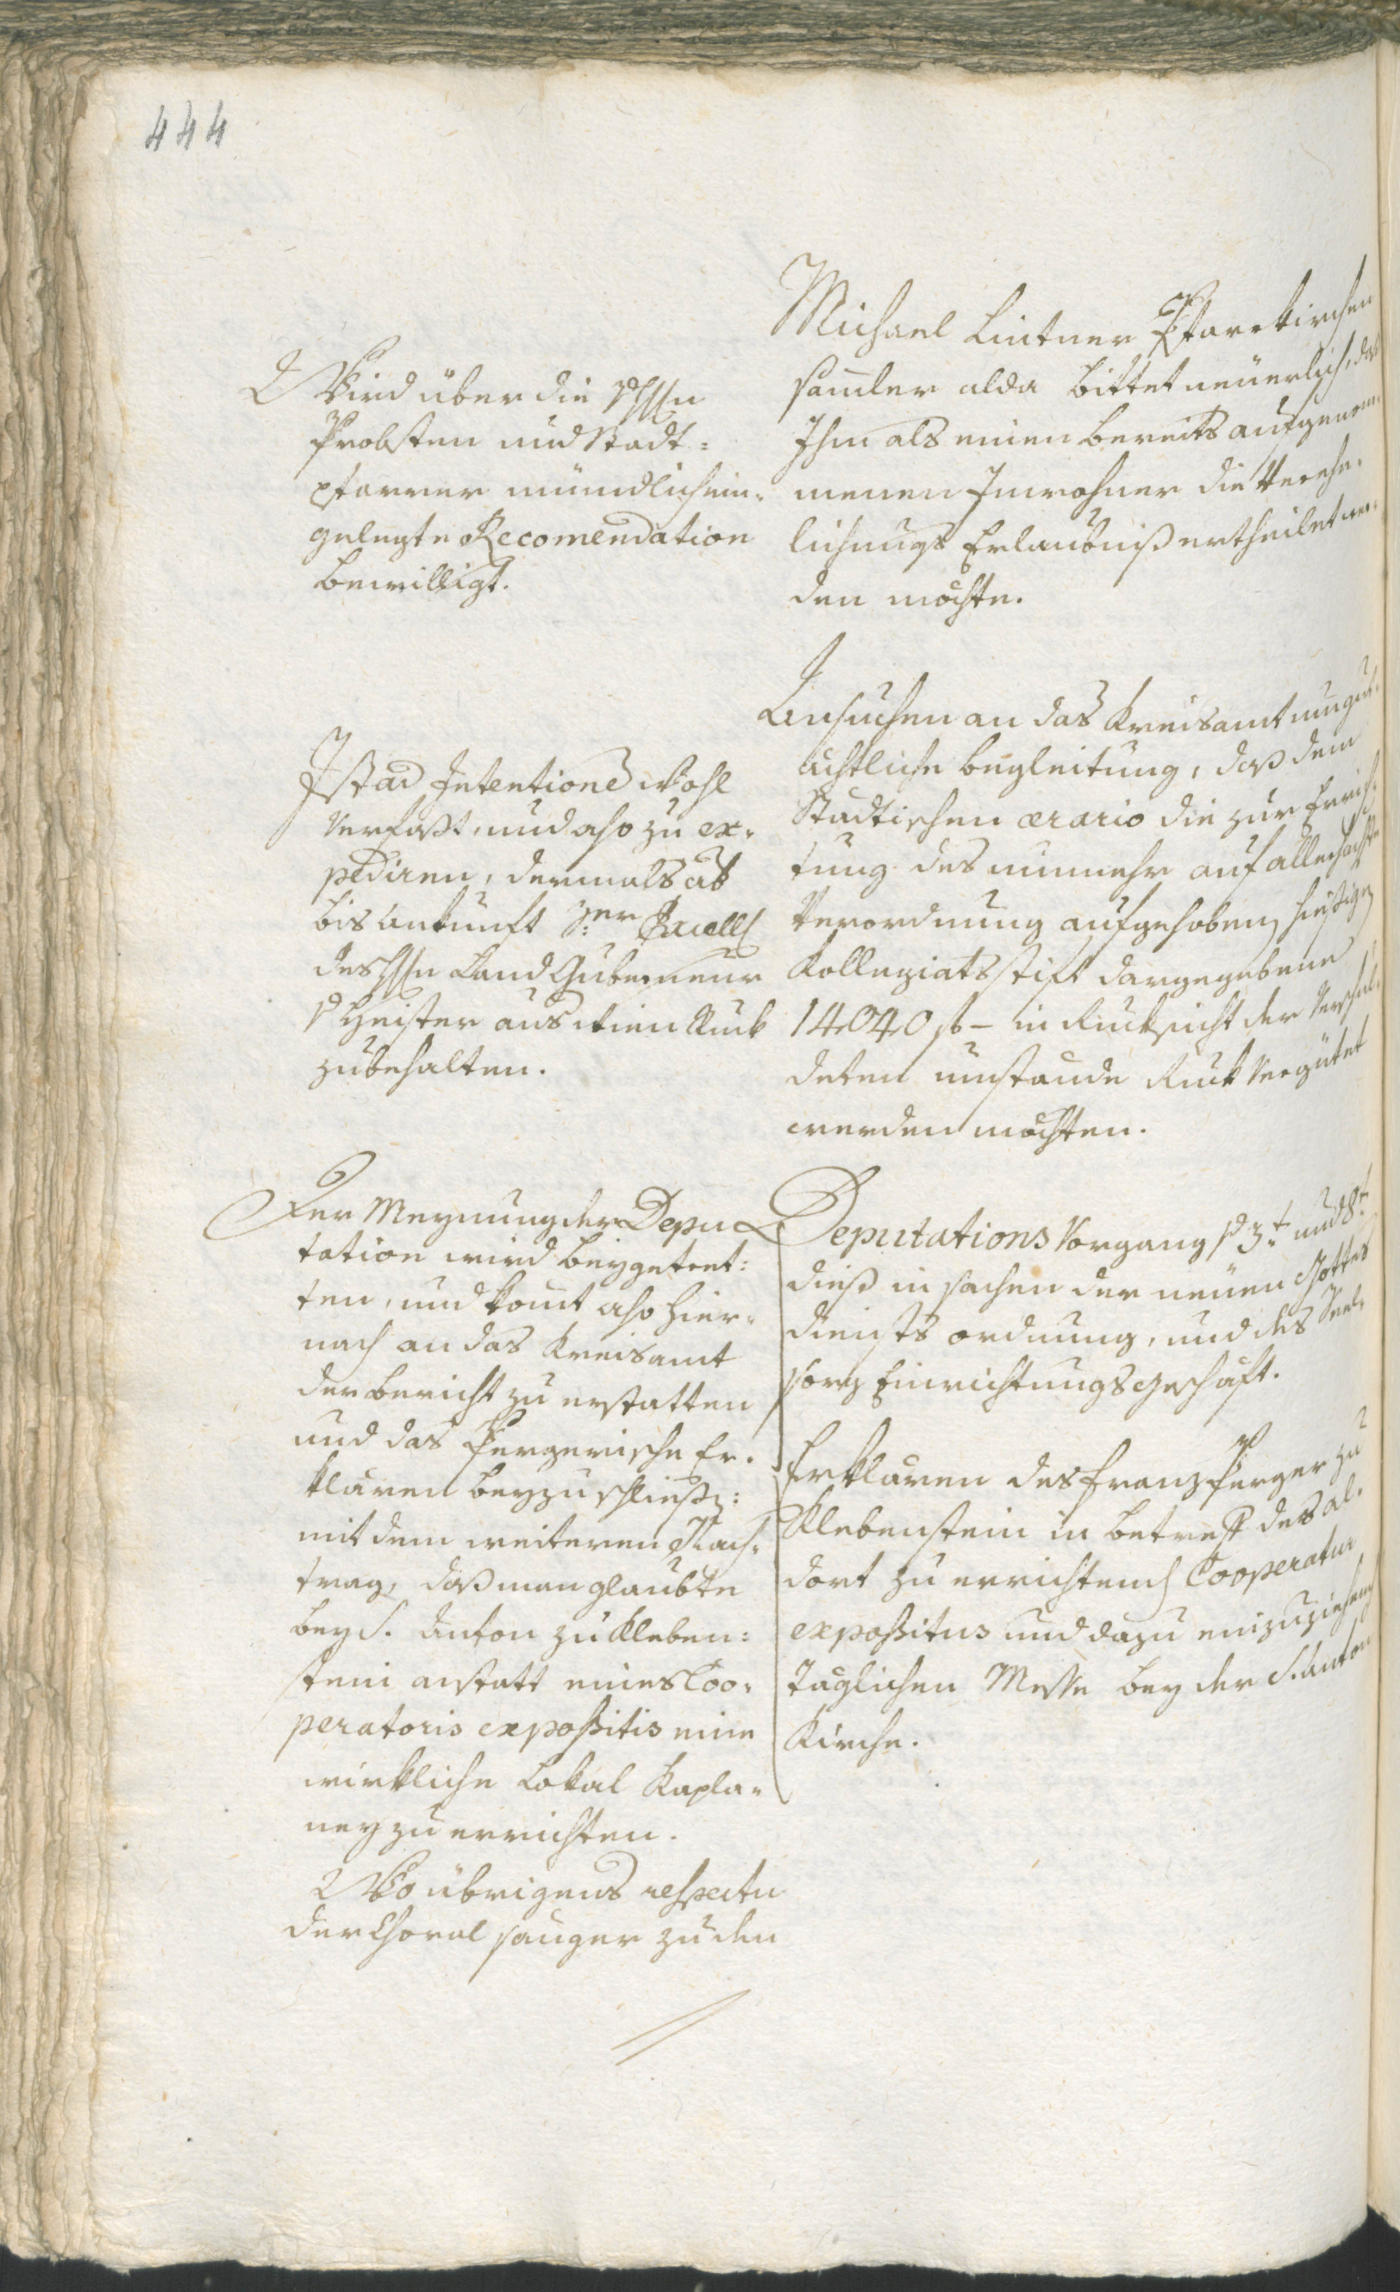 444
Michael Lintner Pfarrkirchen
samler alda bittet neüerlich, das
Ihm als einen bereits aufgenom¬
menen Inwohner die Verehe¬
lichungs Erlaubniß ertheilet wer¬
den möchte.
Wird über die
Probsten und Stadt¬
pfarrer mündlich ein¬
gelegte Recomendation
bewilligt.
Ansuchen an das Kreisamt um gut¬
ächtliche begleitung, daß dem
Stadtischen ærario die zur Errich¬
tung des nunmehr auf allerhöchste
Verordnung aufgehoben hiesigen
Kollegiatsstift dargegebene
14040 f – in Rucksicht der
deten umstände Ruck Vergütet
werden möchten.
Ist ad Intentione Wohl
Verfaßt, und also zu ex¬
pediren, dermals ab
bis Ankunft Sr. Excell
des H Land Guberneur
v Heister aus Wien Ruck
zubehalten.
Deputations Vorgang v 3t und 8t
dieß in sachen der neüen Gottes
diensts ordnung, und des Seel¬
sorg Einrichtungs Geschäft.
Erklären des franz Perger zu
Klebenstein in betreff des al¬
dort zu errichtend Cooperatur
expositus und dazu einzuziehend
täglichen Messe bey der S. Anton
Kirche.
Der Meynung der Depu
tation wird beygetret¬
ten, und komt also hier¬
nach an das Kreisamt
der bericht zu erstatten
und das Pergerische Er¬
klären beyzuschließ:
mit dem weiteren Nach¬
trag, daß man glaubte
bey S. Anton zu Kleben¬
stein anstatt eines Coo¬
peratoris expositis eine
wirkliche Lokal Kapla¬
ney zu errichten.
Wo übrigens respectu
der Choral sänger zu den